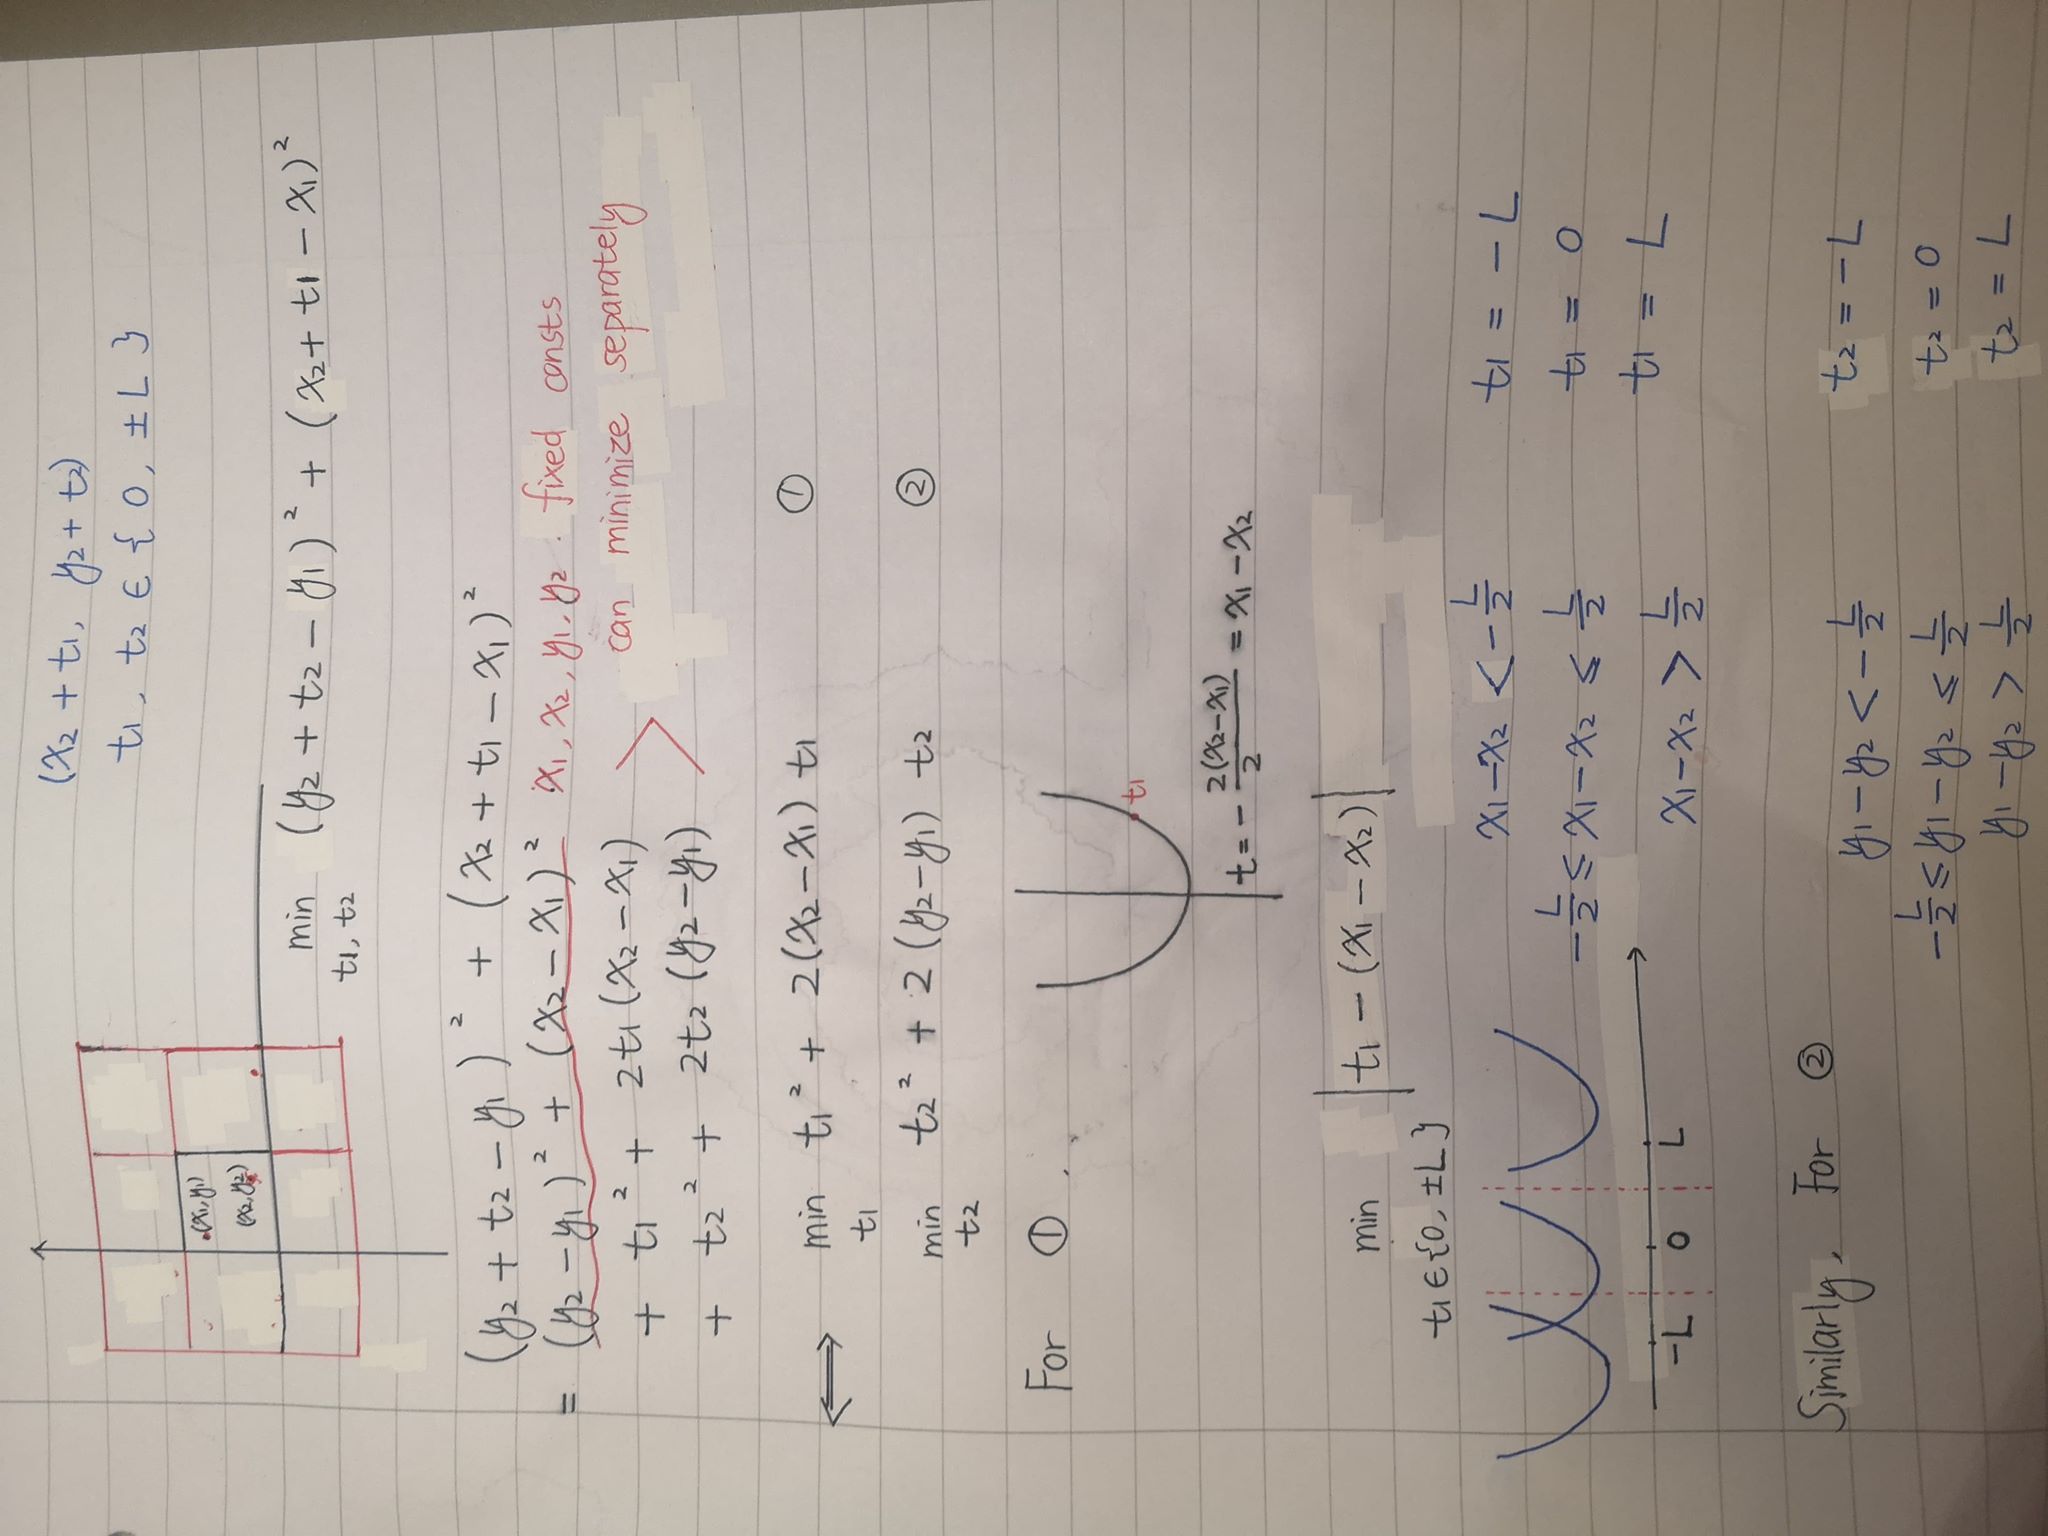 (x₂ + t₁, y₂ + t₂)
t₁, t₂ ∈ { 0, ±L }
(x₁, y₁)
(x₂, y₂)
min (y₂ + t₂ − y₁)² + (x₂ + t₁ − x₁)²
t₁, t₂
(y₂ + t₂ − y₁)² + (x₂ + t₁ − x₁)²
= (y₂ − y₁)² + (x₂ − x₁)² x₁, x₂, y₁, y₂ . fixed consts
+ t₁² + 2t₁(x₂ − x₁) can minimize separately
+ t₂² + 2t₂ (y₂ − y₁)
⟺ min t₁² + 2(x₂ − x₁) t₁ ①
t₁
min t₂² + 2 (y₂ − y₁) t₂ ②
t₂
For ① .
t₁
t = − 2(x₂ − x₁)/2 = x₁ − x₂
min |t₁ − (x₁ − x₂)|
t₁ ∈ {0, ±L }
x₁ − x₂ < − L/2 t₁ = − L
− L/2 ≤ x₁ − x₂ ≤ L/2 t₁ = 0
x₁ − x₂ > L/2 t₁ = L
−L 0 L
Similarly, For ②
y₁ − y₂ < − L/2 t₂ = − L
− L/2 ≤ y₁ − y₂ ≤ L/2 t₂ = 0
y₁ − y₂ > L/2 t₂ = L